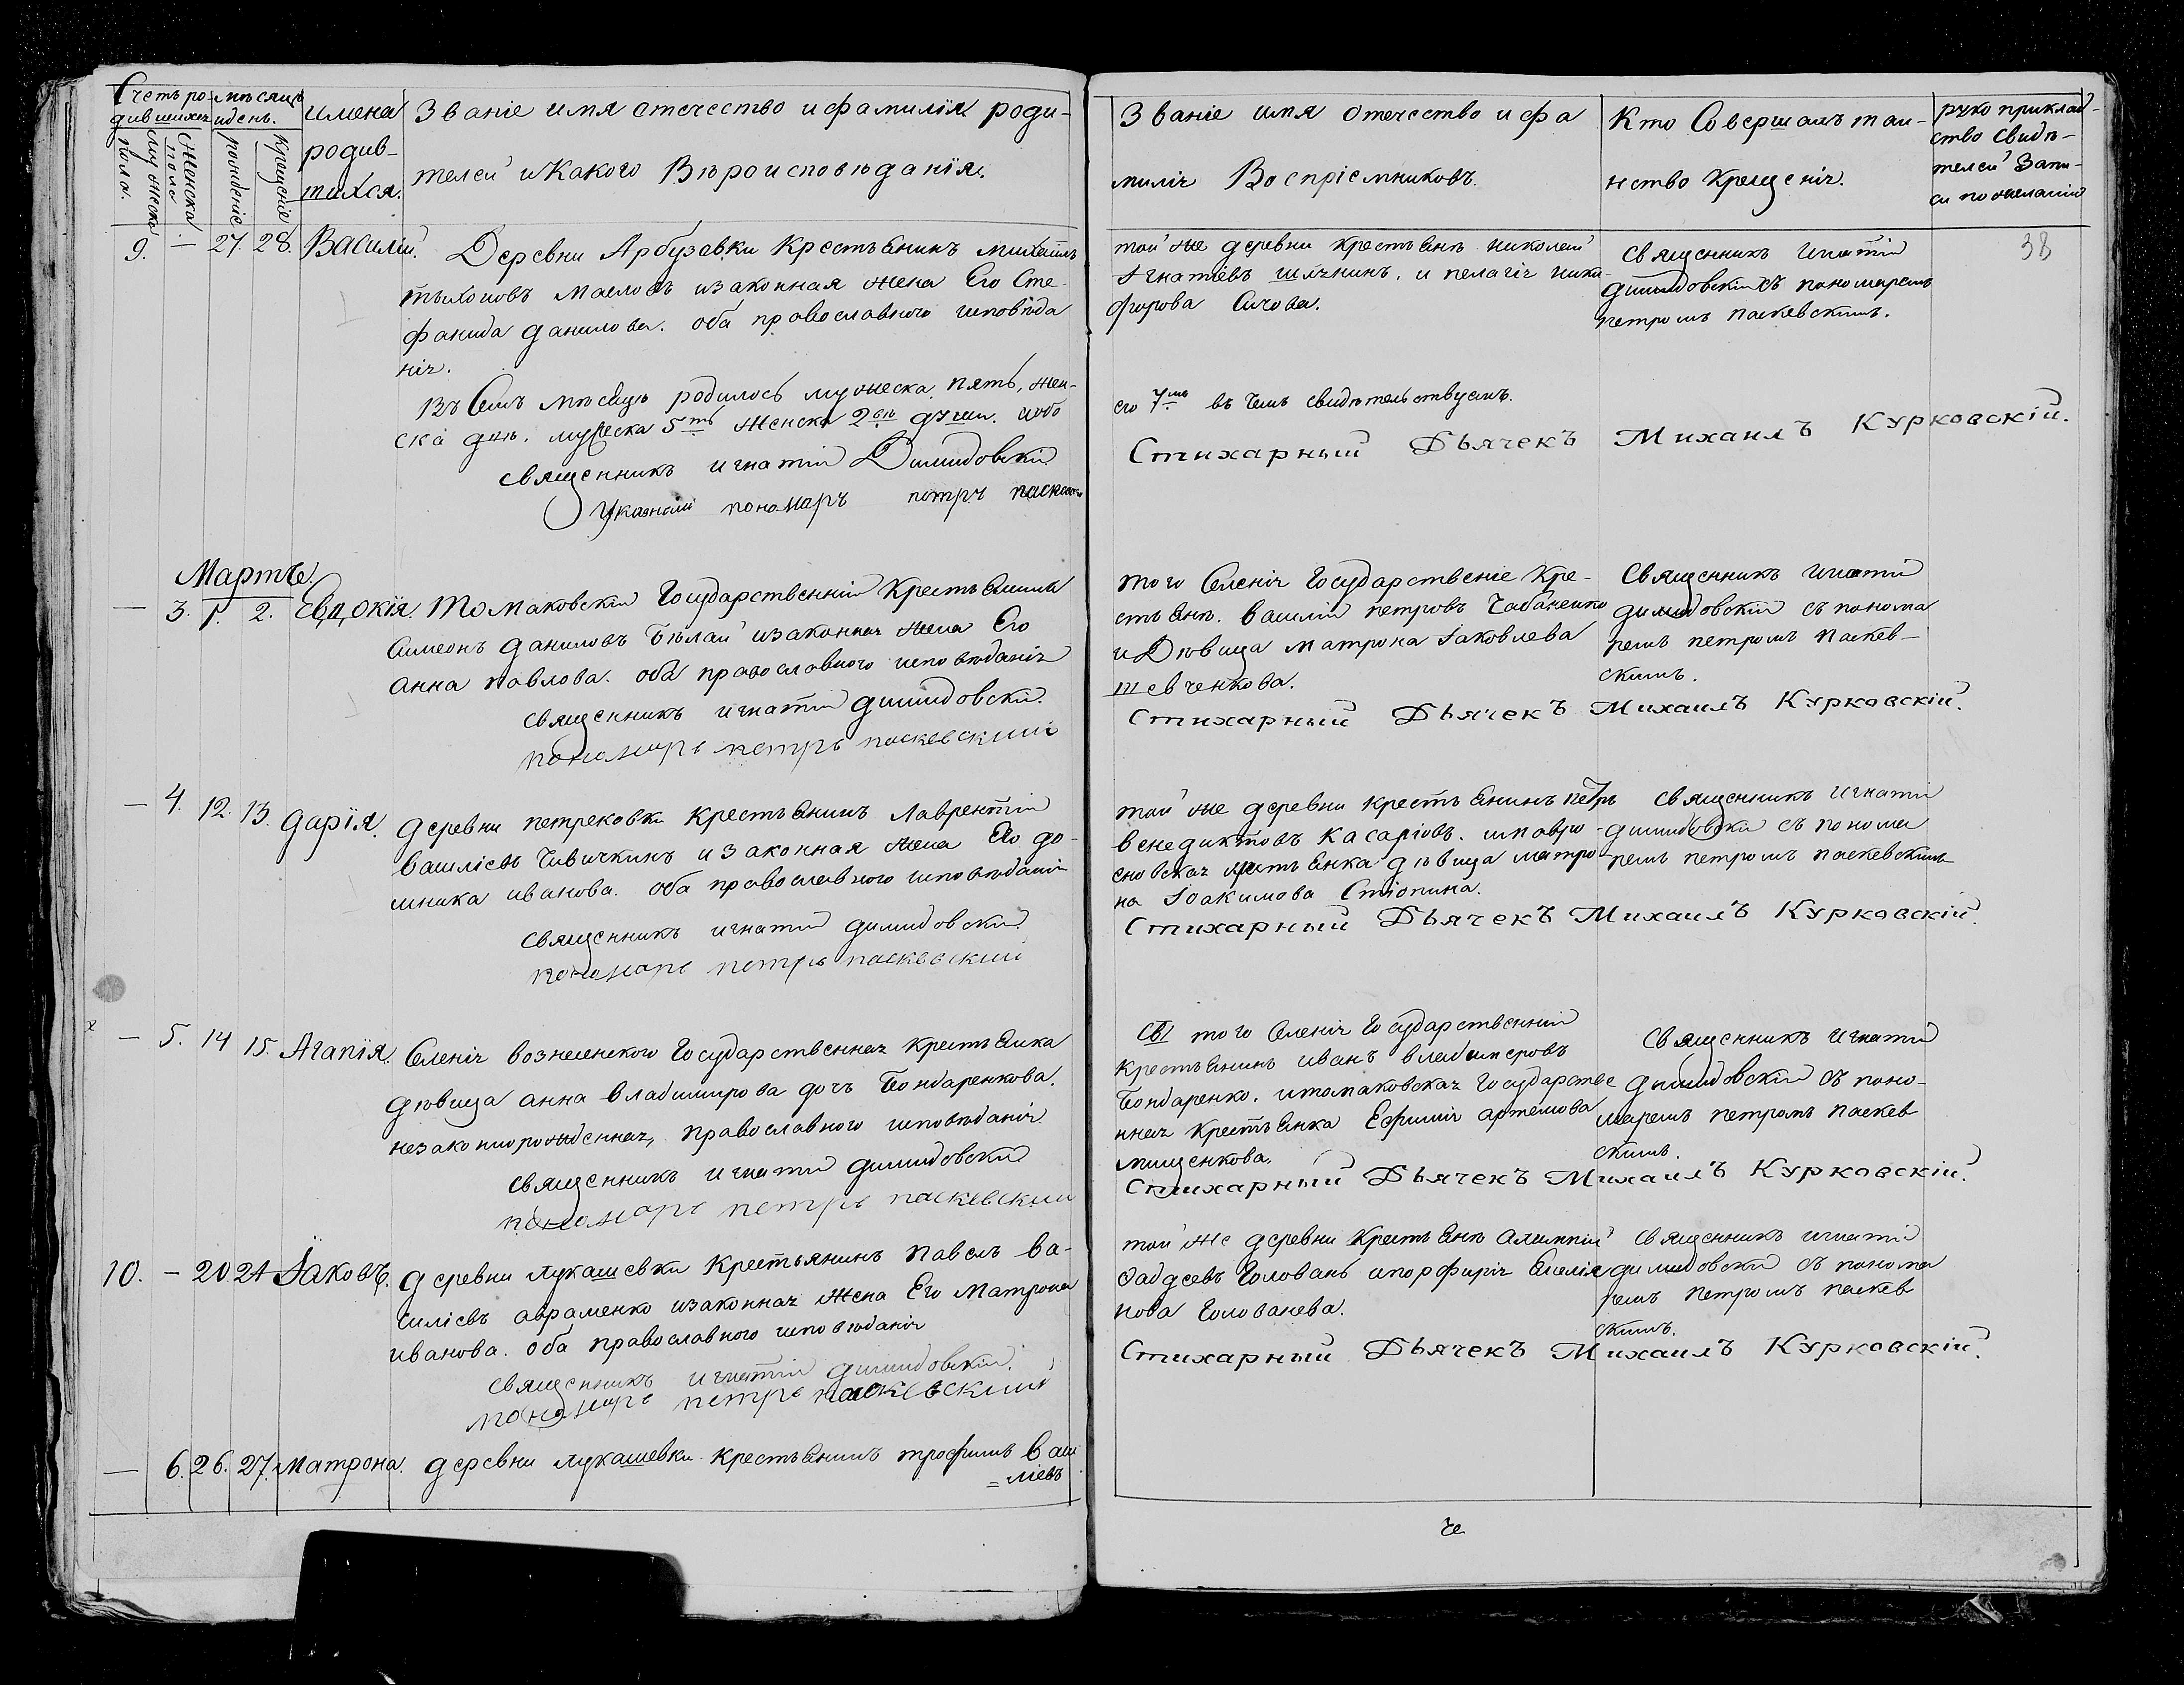 Счетъ ро-
дившихся
мѣсяцъ
и день.
имена
родив-
шихся.
Званіе имя отечество и фамилія роди-
телей и Какого Вѣроисповѣданія.
Мужеска
пола.
Женска
пола
рожденіе
Крещеніе
Званіе имя отечество и фа
миліи Воспріемниковъ.
Кто Совершалъ таи-
нство Крещенія.
рукоприклад-
ство Свидѣ-
телей Запи-
си по желанію
38
9. — 27. 28. Василій.
Деревни Арбузовки Крестьянинъ Михаилъ
Тихоновъ Масловъ изаконная жена Его Сте-
фанида данилова. оба православного исповѣда
нія.
той же деревни крестьянъ николай
Игнатіевъ и пелагія ники-
форова Сичова.
Священникъ Игнатій
димидовскій съ пономаремъ
петромъ паскевскимъ.
Въ Семъ мѣсяцѣ родилось мужеска пять, жен-
ска двѣ. мужеска 5ть женска 2вѣ души. обо
его 7мь въ чемъ свидѣтельствуемъ.
священникъ игнатій Димидовскій
Указной пономаръ петръ паскевскій
Стихарный Дьячекъ Михаилъ Курковскій.
Мартъ.
— 3. 1. 2. Евдокія.
Томаковскій Государственній Крестьянинъ
Симеонъ даниловъ Бѣлай изаконная жена Его
Анна павлова. оба православного исповѣданія
священникъ игнатій димидовскій.
пономарь петръ паскевский
того Селенія Государственіе Кре-
стьянъ. василій петровъ Чабаненко
и Дѣвица матрона Іаковлева
шевченкова.
Священникъ Игнатій
димидовскій съ понома
ремъ петромъ паскев-
скимъ.
Стихарный Дьячекъ Михаилъ Курковскій.
— 4. 12. 13. дарія.
деревни петрековки Крестьянинъ Лаврентій
василіевъ Чивичкинъ изаконная жена Его до-
мника иванова. оба православного исповѣданія
священникъ игнатій димидовскій
пономаръ петръ паскевский
той же деревни крестьянинъ петръ
венедиктовъ Касаріовъ. ипавро-
сновская крестьянка дѣвица матро
на Іоакимова Стіопина.
священникъ Игнатій
димидовскій съ понома
ремъ петромъ паскевскимъ
Стихарный Дьячекъ Михаилъ Курковскій.
— 5. 14 15. Агапія.
Селенія вознесенского Государственная крестьянка
дѣвица анна владимирова дочь Бондаренкова.
незаконнорожденная, православного исповѣданія.
священникъ игнатій димидовскій
пономаръ петръ паскевский
того Селенія Государственній
крестьянинъ иванъ владимеровъ
Бондаренко. итомаковская Государстве
нная крестьянка Ефимія артемова
мищенкова.
Священникъ Игнатій
димидовскій съ поно-
маремъ петромъ паскев
скимъ.
Стихарный Дьячекъ Михаилъ Курковскій.
10. — 20 21 Іаковъ.
деревни лукашевки крестьянинъ павелъ ва-
силіевъ авраменко изаконная жена Его Матрона
иванова. оба православного исповѣданія
священникъ игнатій димидовскій.
пономаръ петръ паскевский
той же деревни Крестьянъ Алимпій
Фадеевъ Голованъ ипорфирія
пова Голованева.
священникъ игнатій
димидовскій съ понома
ремъ петромъ паскев
скимъ.
Стихарный Дьячекъ Михаилъ Курковскій.
— 6. 26. 27. Матрона.
деревни лукашевки крестьянинъ трофимъ Васи
= ліевъ